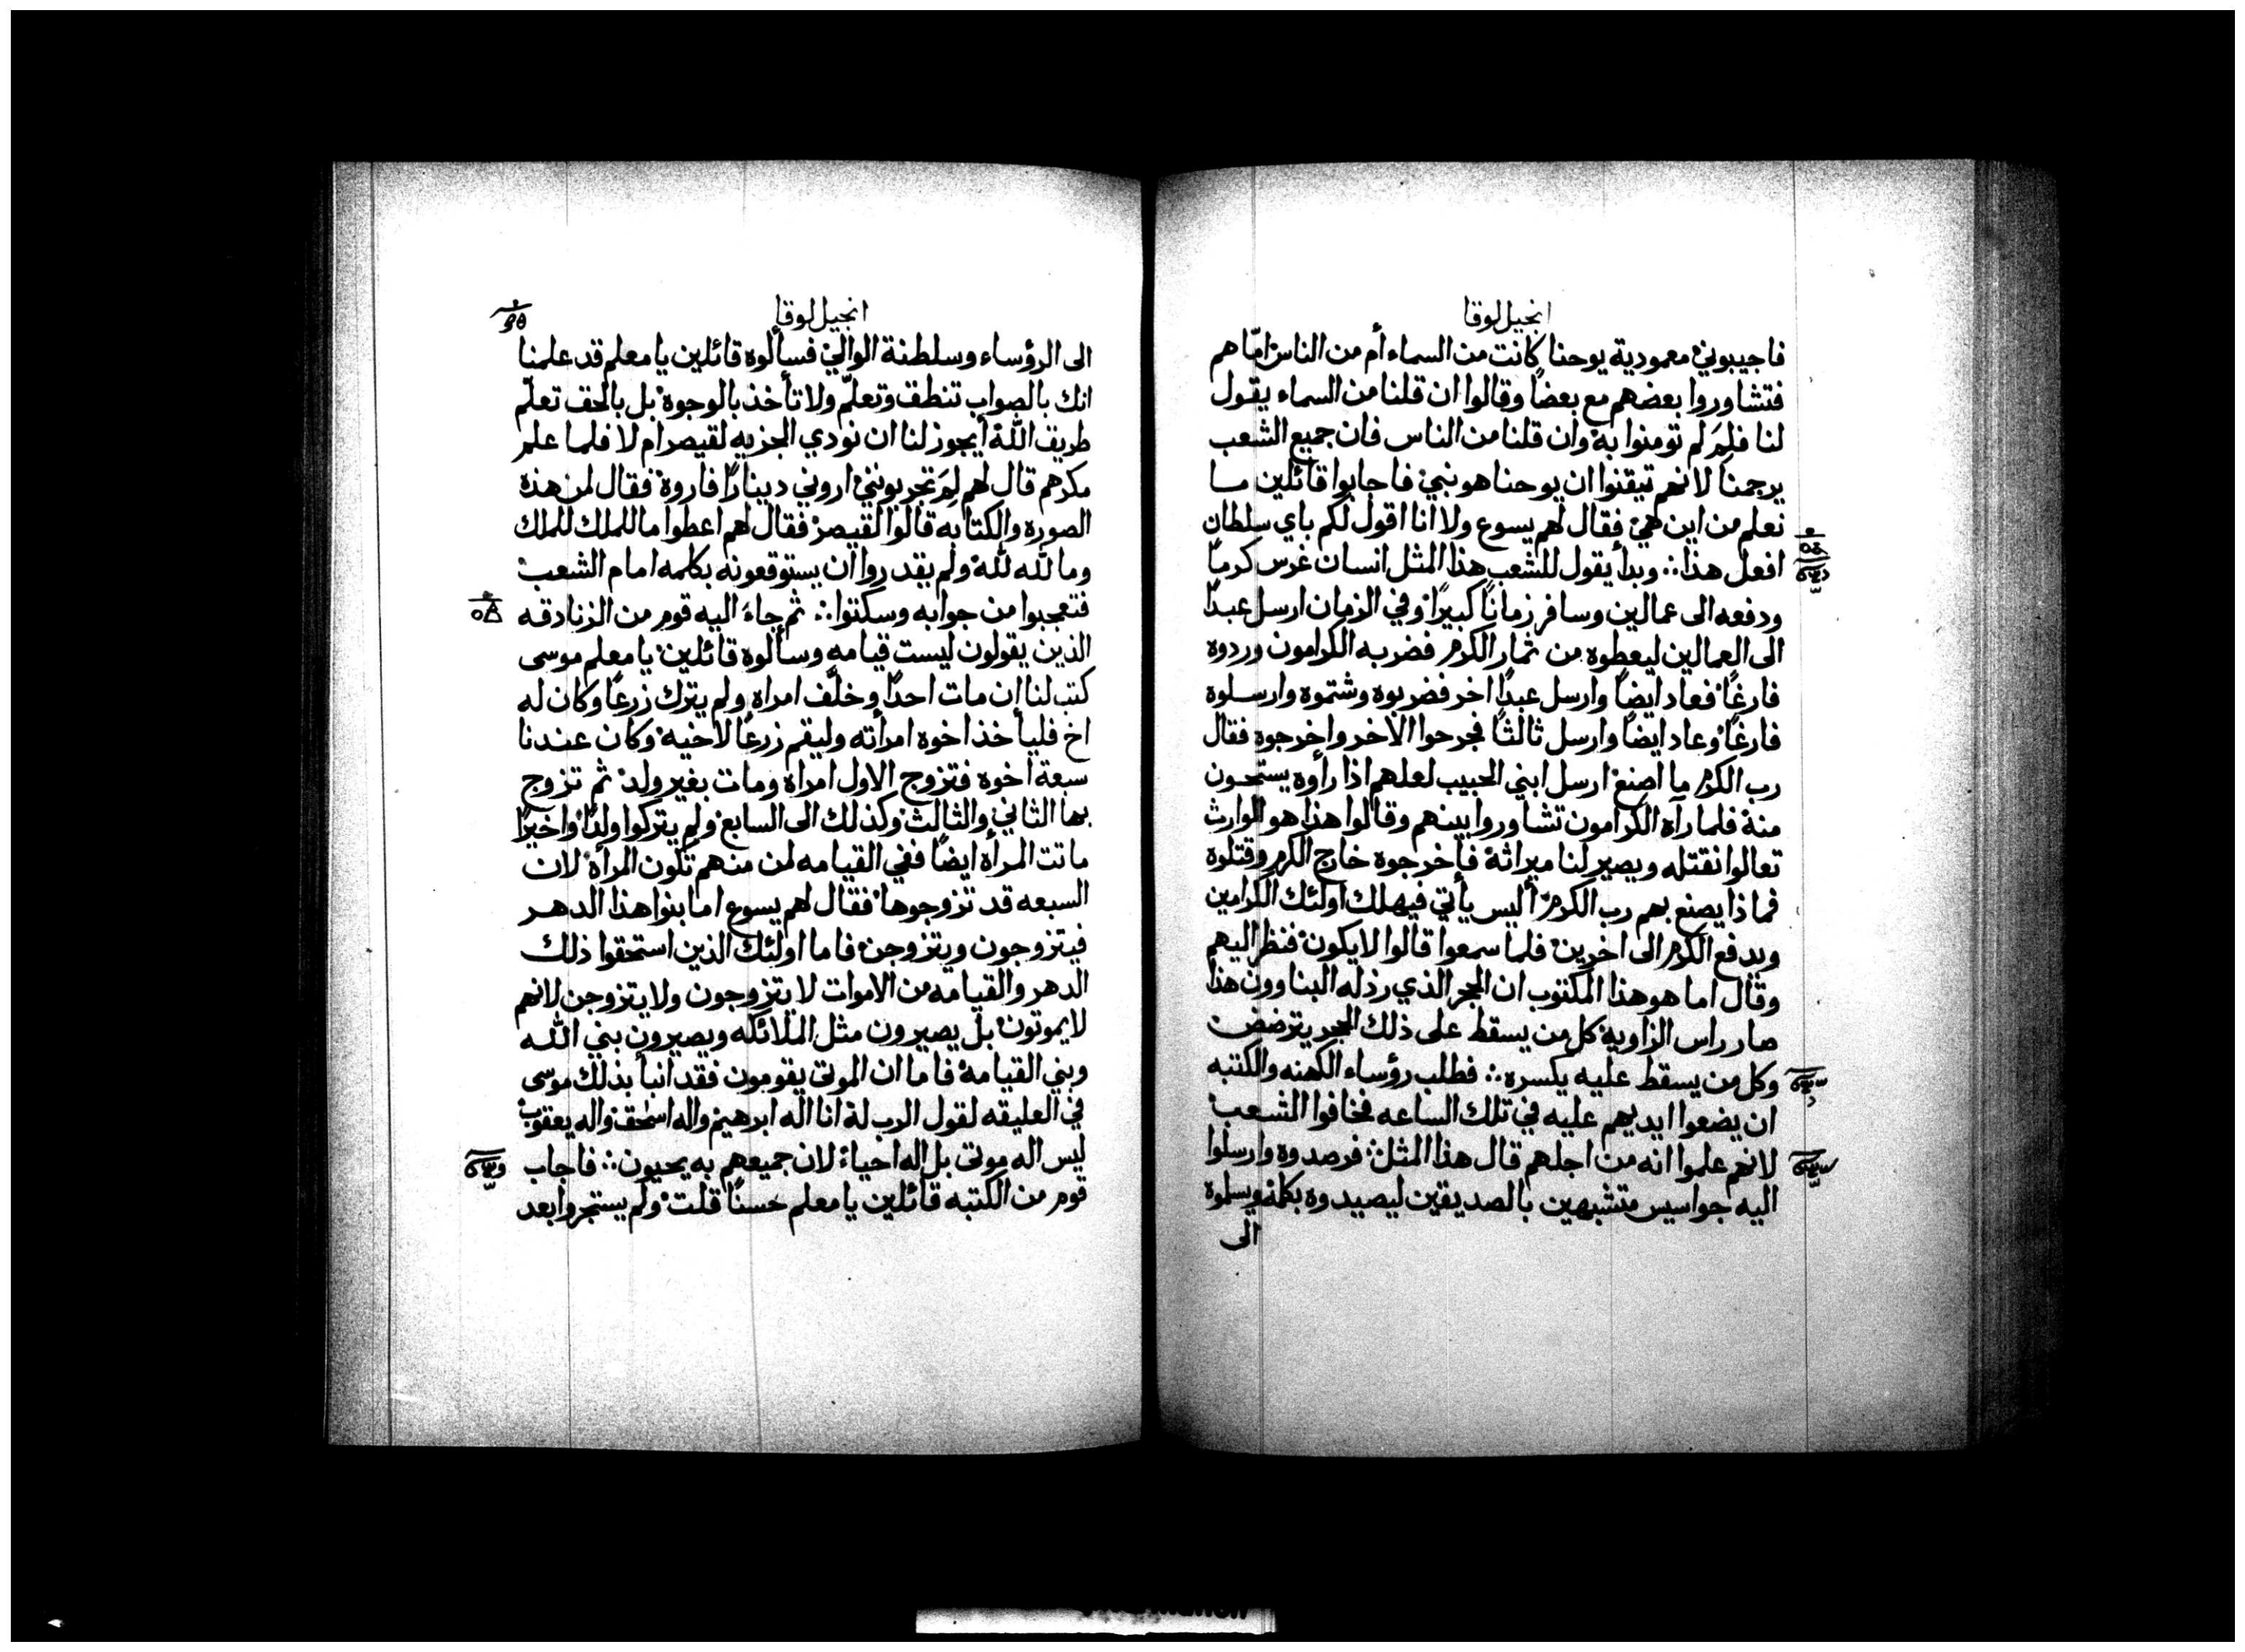 انجيل لوقا
فاجيبوني معمودية يوحنا كانت من السماء أم من الناس امّا هم
فتشاوروا بعضهم مع بعضاً وقالوا ان قلنا من السماء يقول
لنا فلِمَ لم تومنوا به وان قلنا من الناس فان جميع الشعب
يرجمنا لانهم تيقنوا ان يوحنا هو نبي فاجابوا قائلين ما
نعلم من اين هي فقال لهم يسوع ولا انا اقول لكم باي سلطان
افعل هذا ؞ وبدأ يقول للشعب هذا المثل انسان غرس كرماً
ودفعه الى عمالين وسافر زماناً كبيراً وفي الزمان ارسل عبداً
الى العمالين ليعطوه من ثمار الكرم فضربه الكرامون وردوه
فارغاً فعاد ايضاً وارسل عبداً اخر فضربوه وشتموه وارسلوه
فارغاً وعاد ايضاً وارسل ثالثاً فجرحوا الاخر واخرجوه فقال
رب الكرم ما اصنع ارسل ابني الحبيب لعلهم اذا رأوه يستحون
منه فلما رآه الكرامون تشاوروا بينهم وقالوا هذا هو الوارث
تعالوا نقتله ويصير لنا ميراثه فاخرجوه خارج الكرم وقتلوه
فماذا يصنع بهم رب الكرم أليس يأتي فيهلك اولئك الكرامين
ويدفع الكرم الى اخرين فلما سمعوا قالوا لا يكون فنظر اليهم
وقال اما هو هذا المكتوب ان الحجر الذي رذله البناوون هذا
صار راس الزاوية كل من يسقط على ذلك الحجر يترضض
وكل من يسقط عليه يكسره ؞ فطلب رؤساء الكهنه والكتبه
ان يضعوا ايديهم عليه في تلك الساعه فخافوا الشعب
لانهم علموا انه من اجلهم قال هذا المثل ؞ فرصدوه وارسلوا
اليه جواسيس متشبهين بالصديقين ليصيدوه بكلمة ويسلموه
الى
انجيل لوقا
الى الرؤساء وسلطنة الوالي فسألوه قائلين يا معلم قد علمنا
انك بالصواب تنطق وتعلّم ولا تأخذ بالوجوه بل بالحق تعلّم
طريق الله أيجوز لنا ان نودي الجزيه لقيصر ام لا فلما علم
مكرهم قال لهم لِمَ تجربونني اروني ديناراً فاروه فقال لمن هذه
الصوره والكتابه قالوا لقيصر فقال لهم اعطوا ما للملك للملك
وما لله لله ولم يقدروا ان يستوقعونه بكلمه امام الشعب
فتعجبوا من جوابه وسكتوا ؞ ثم جاءَ اليه قوم من الزنادقه
الذين يقولون ليست قيامه وسألوه قائلين يا معلم موسى
كتب لنا إن مات احداً وخلَّف امراه ولم يترك زرعاً وكان له
اخ فليأخذ اخوه امرأته وليقم زرعاً لاخيه وكان عندنا
سبعة اخوه فتزوج الاول امراه ومات بغير ولد ثم تزوج
بها الثاني والثالث وكذلك الى السابع ولم يتركوا ولداً واخيراً
ماتت المرأة ايضاً ففي القيامه لمن منهم تكون المرأة لان
السبعه قد تزوجوها فقال لهم يسوع اما بنوا هذا الدهر
فيتزوجون ويتزوجن فاما اولئك الذين استحقوا ذلك
الدهر والقيامه من الاموات لا يتزوجون ولا يتزوجن لانهم
لا يموتون بل يصيرون مثل الملائكه ويصيرون بني الله
وبني القيامة فاما ان الموتى يقومون فقد انبأ بذلك موسى
في العليقه لقول الرب له انا اله ابرهيم واله اسحق واله يعقوب
ليس اله موتى بل اله احياء لان جميعهم به يحيون ؞ فاجاب
قوم من الكتبه قائلين يا معلم حسناً قلت ولم يستجروا بعد